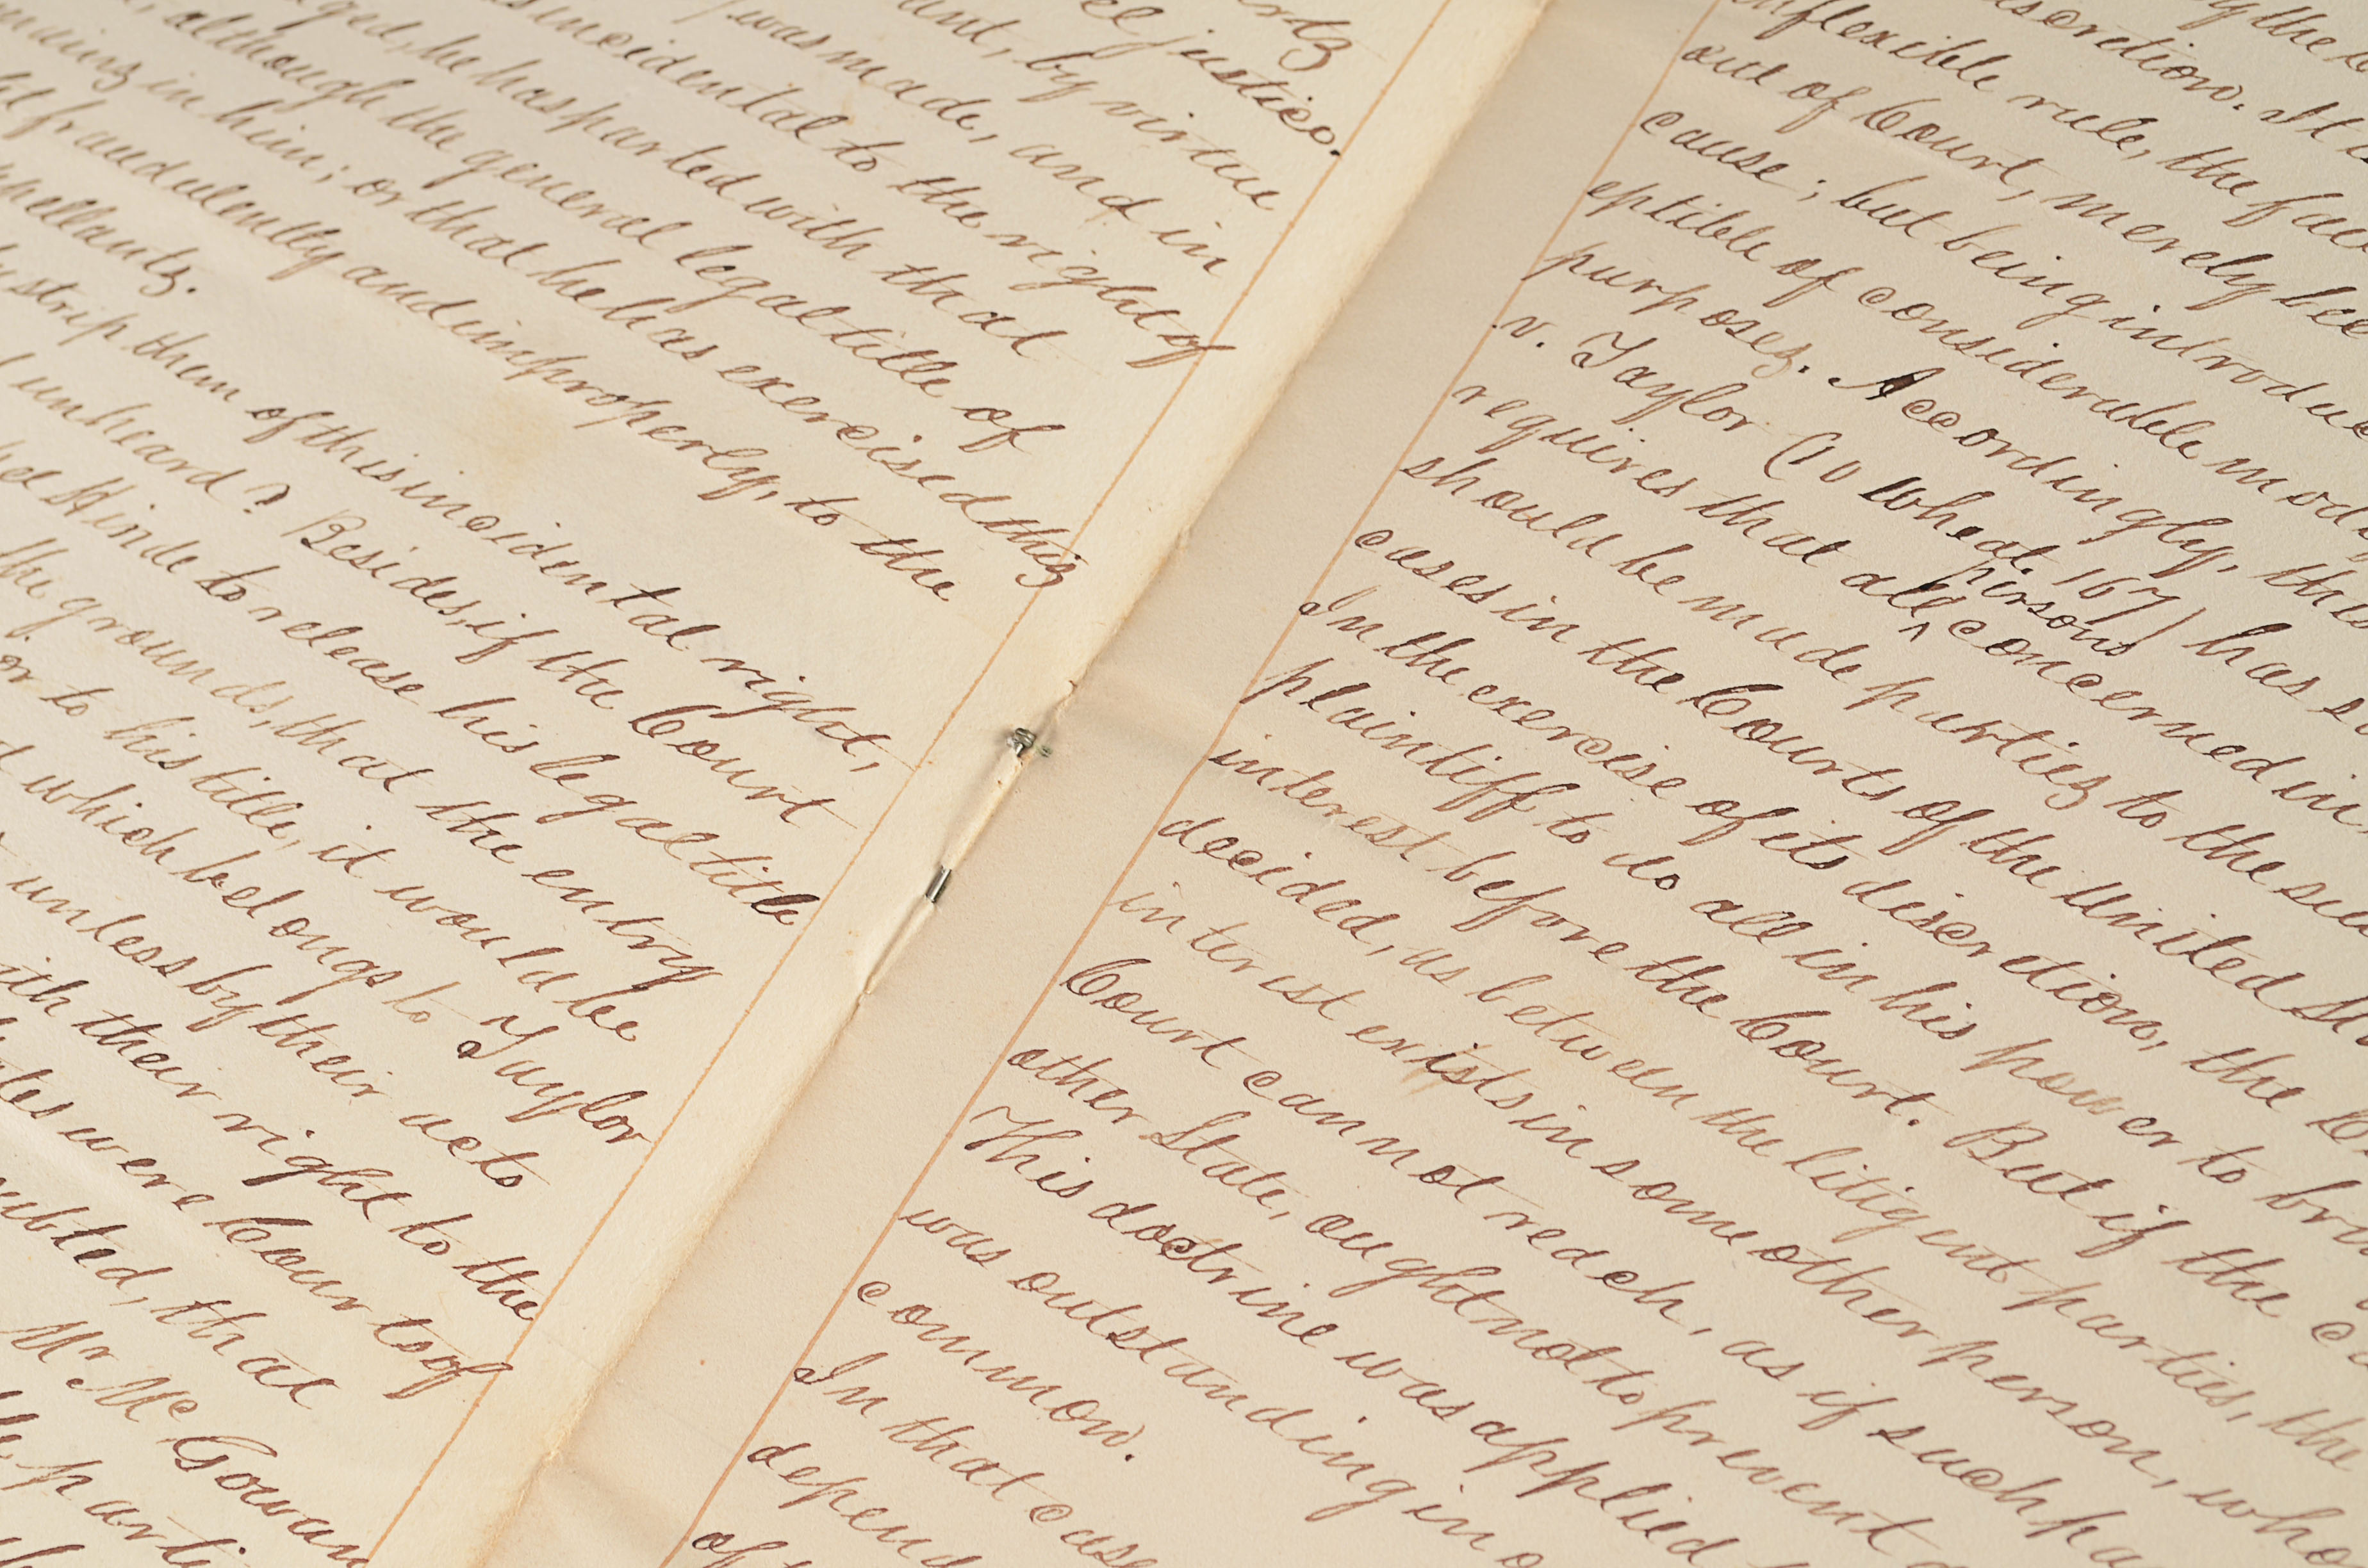 justice.
by virtue
was made, and in
incidental to the right of
he has parted with that
although the general legal title of
in him; or that he has exercised this
fraudulently and improperly, to the
ppellants.
strip them of this incidental right,
unheard? Besides, if the Court
Hinde to release his legal title
the grounds, that the entry
or to his title, it would be
which belongs to Taylor
unless by their acts
ith their right to the
were Courts of
ubted, that
Mr McGowan
parti
by the
discretion. It
inflexible rule, the
out of Court, merely bec
cause; but being introduc
eptible of considerable modi
purposes. Accordingly, this
v. Taylor (10 Wheat. 167) has
requires that all persons concerned in
should be made parties to the sui
cases in the Courts of the United St
In the exercise of its discretion, the
plaintiff to do all in his power to brin
interest before the Court. But if the c
decided, as between the litigant parties, the
interest exists in some other person, who
Court cannot reach, as if such pa
other State, ought not to prevent
This doctrine was applied
was outstanding in
common.
In that case
depend
of